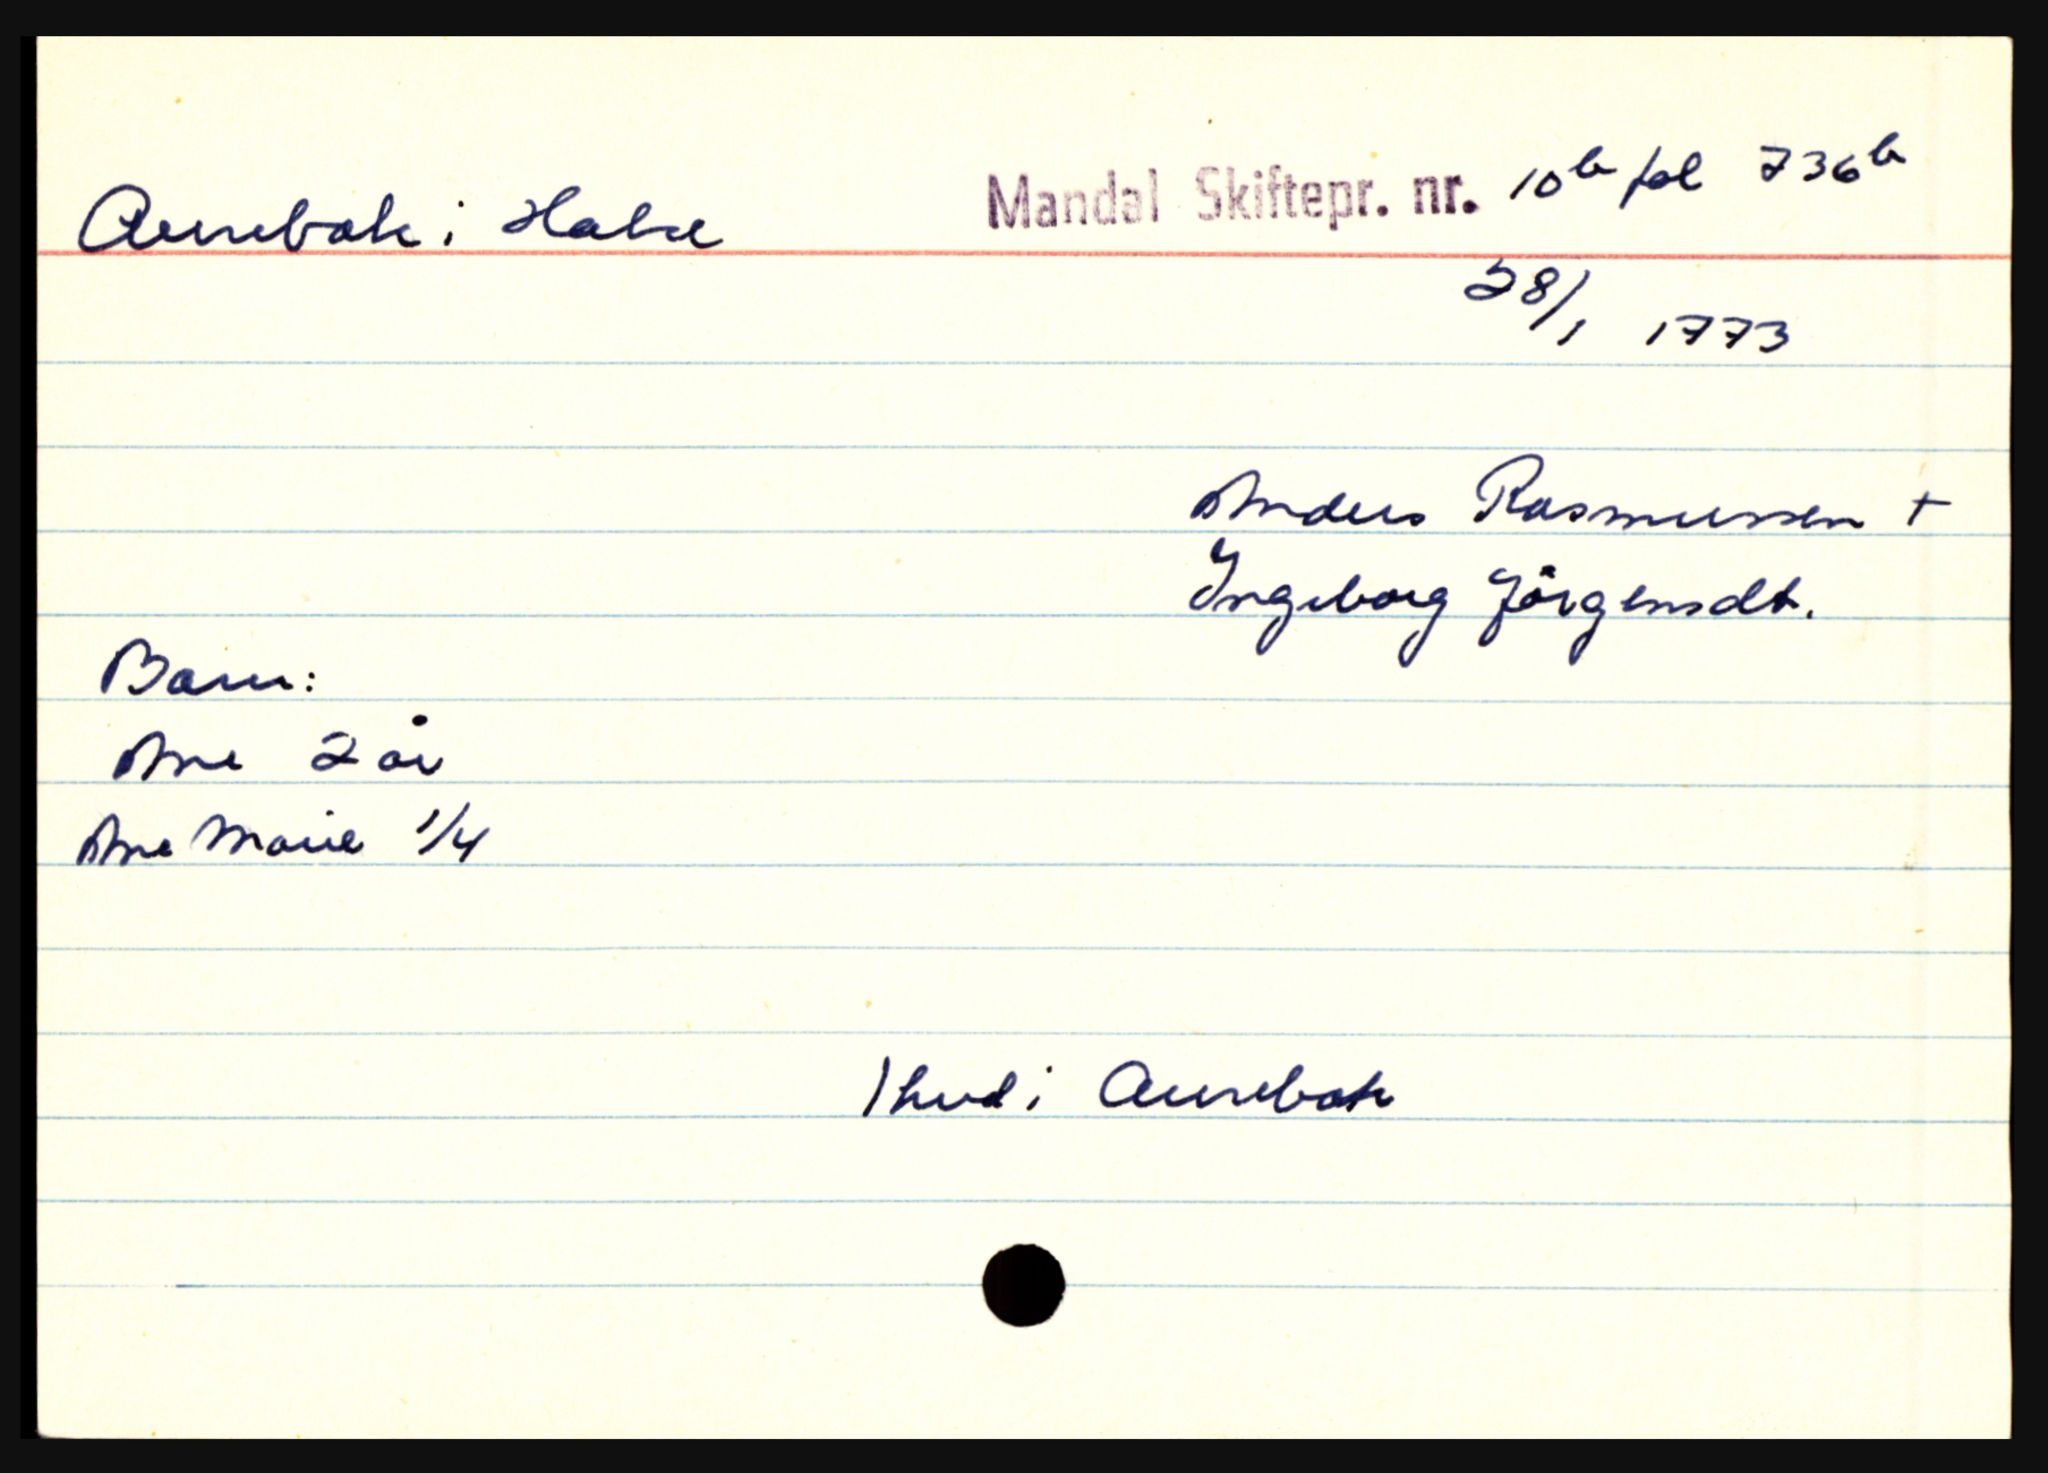 Aurebak i Halse
Mandal Skiftepr. nr. 10b fol 736b
28/1 1773
Anders Rasmussen +
Ingeborg Jörgensdt.
Barn:
Ane 2 år
Ane Marie 1/4
1 hud i Aurebak